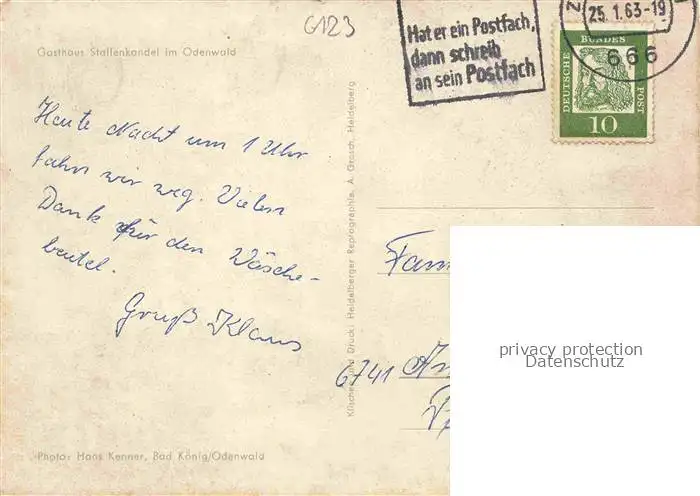 G123
Gasthaus Stallenkandel im Odenwald
Hat er ein Postfach,
dann schreib
an sein Postfach
25.1.63-19
666
DEUTSCHE
BUNDES
POST
10
Heute Nacht um 1 Uhr
fahrn wir weg. Vielen
Dank für den Wäsche-
beutel.
Gruß Klaus
Klischee und Druck: Heidelberger Reprographie, A. Grosch, Heidelberg
Fam
6741
privacy protection
Datenschutz
Photo: Hans Kenner, Bad König/Odenwald